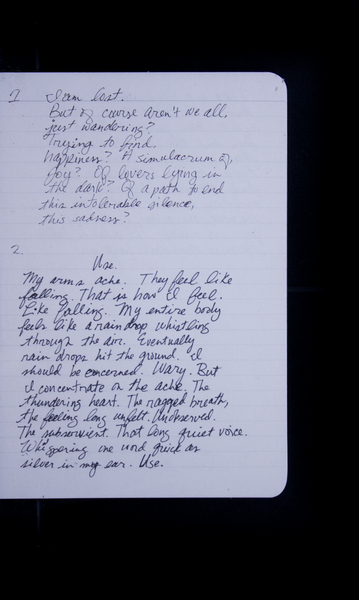 1 I am lost.
But of course aren't we all,
just wandering?
Trying to find
happiness? A simulacrum of,
joy? Of lovers lying in
the dark? Of a path to end
this intolerable silence,
this sadness?
2.
Use.
My arms ache. They feel like
falling. That is how I feel.
Like falling. My entire body
feels like a raindrop whistling
through the air. Eventually
rain drops hit the ground. I
should be concerned. Wary. But
I concentrate on the ache. The
thundering heart. The ragged breath,
the feeling long unfelt. Undeserved.
The subservient. That long quiet voice.
Whispering one word quick as
silver in my ear. Use.